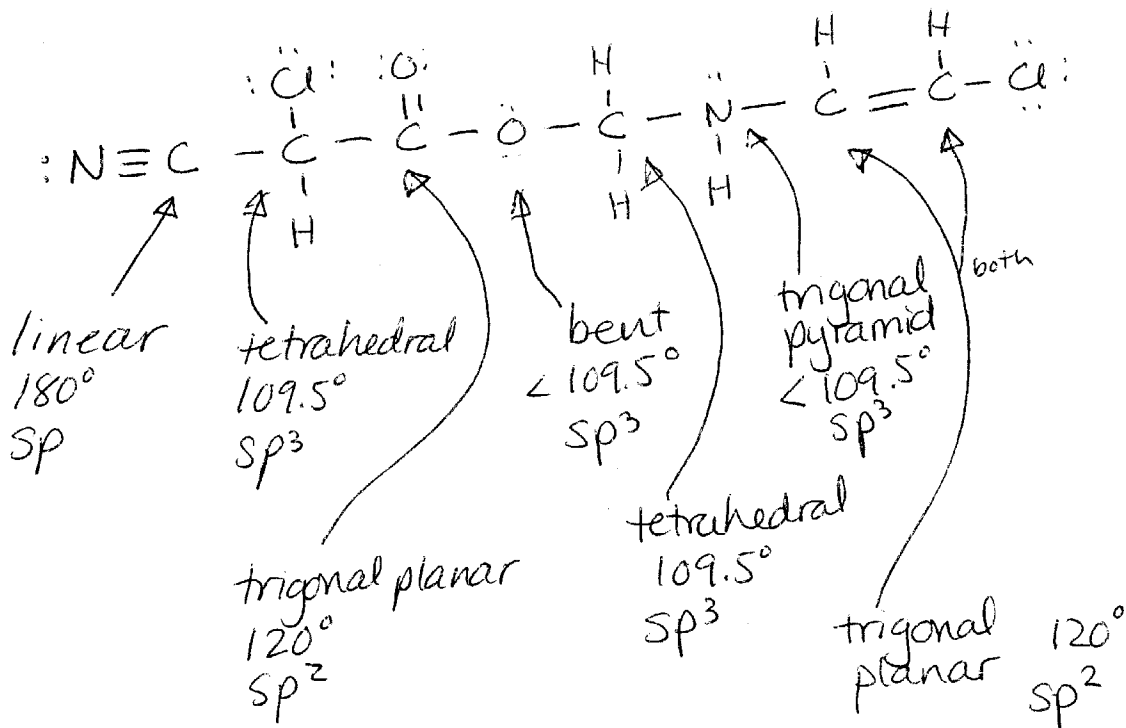 H H
:Cl: :O: H C = C - Cl:
:N ≡ C - C - C - O - C - N -
H H H
both
linear
180°
sp
tetrahedral
109.5°
sp³
bent
< 109.5°
sp³
trigonal
pyramid
< 109.5°
sp³
trigonal planar
120°
sp²
tetrahedral
109.5°
sp³
trigonal 120°
planar sp²